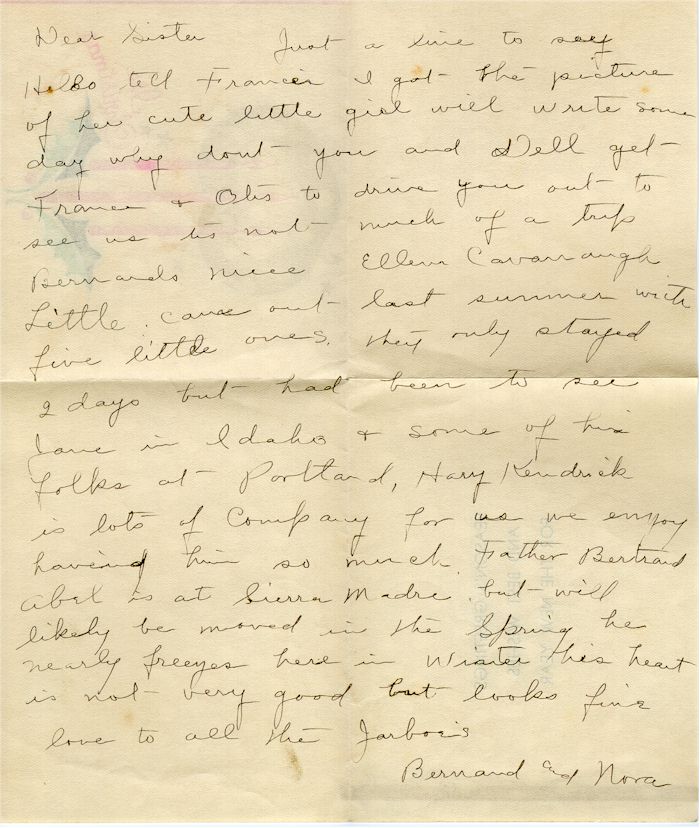 Dear Sister Just a line to say
Hello tell Frances I got the picture
of her cute little girl will write some
day why dont you and Dell get
Frances & Otis to drive you out to
see us tis not much of a trip
Bernards niece Ellen Cavanaugh
Little. came out last summer with
five little ones. they only stayed
2 days but had been to see
Jane in Idaho & some of his
folks at Portland, Hary Kendrick
is lots of Company for us we enjoy
having him so much. Father Bertrand
Abel is at Sierra Madre. but will
likely be moved in the Spring he
nearly freezes here in Winter his heart
is not very good but looks fine
love to all the Jarboe's
Bernard and Nora